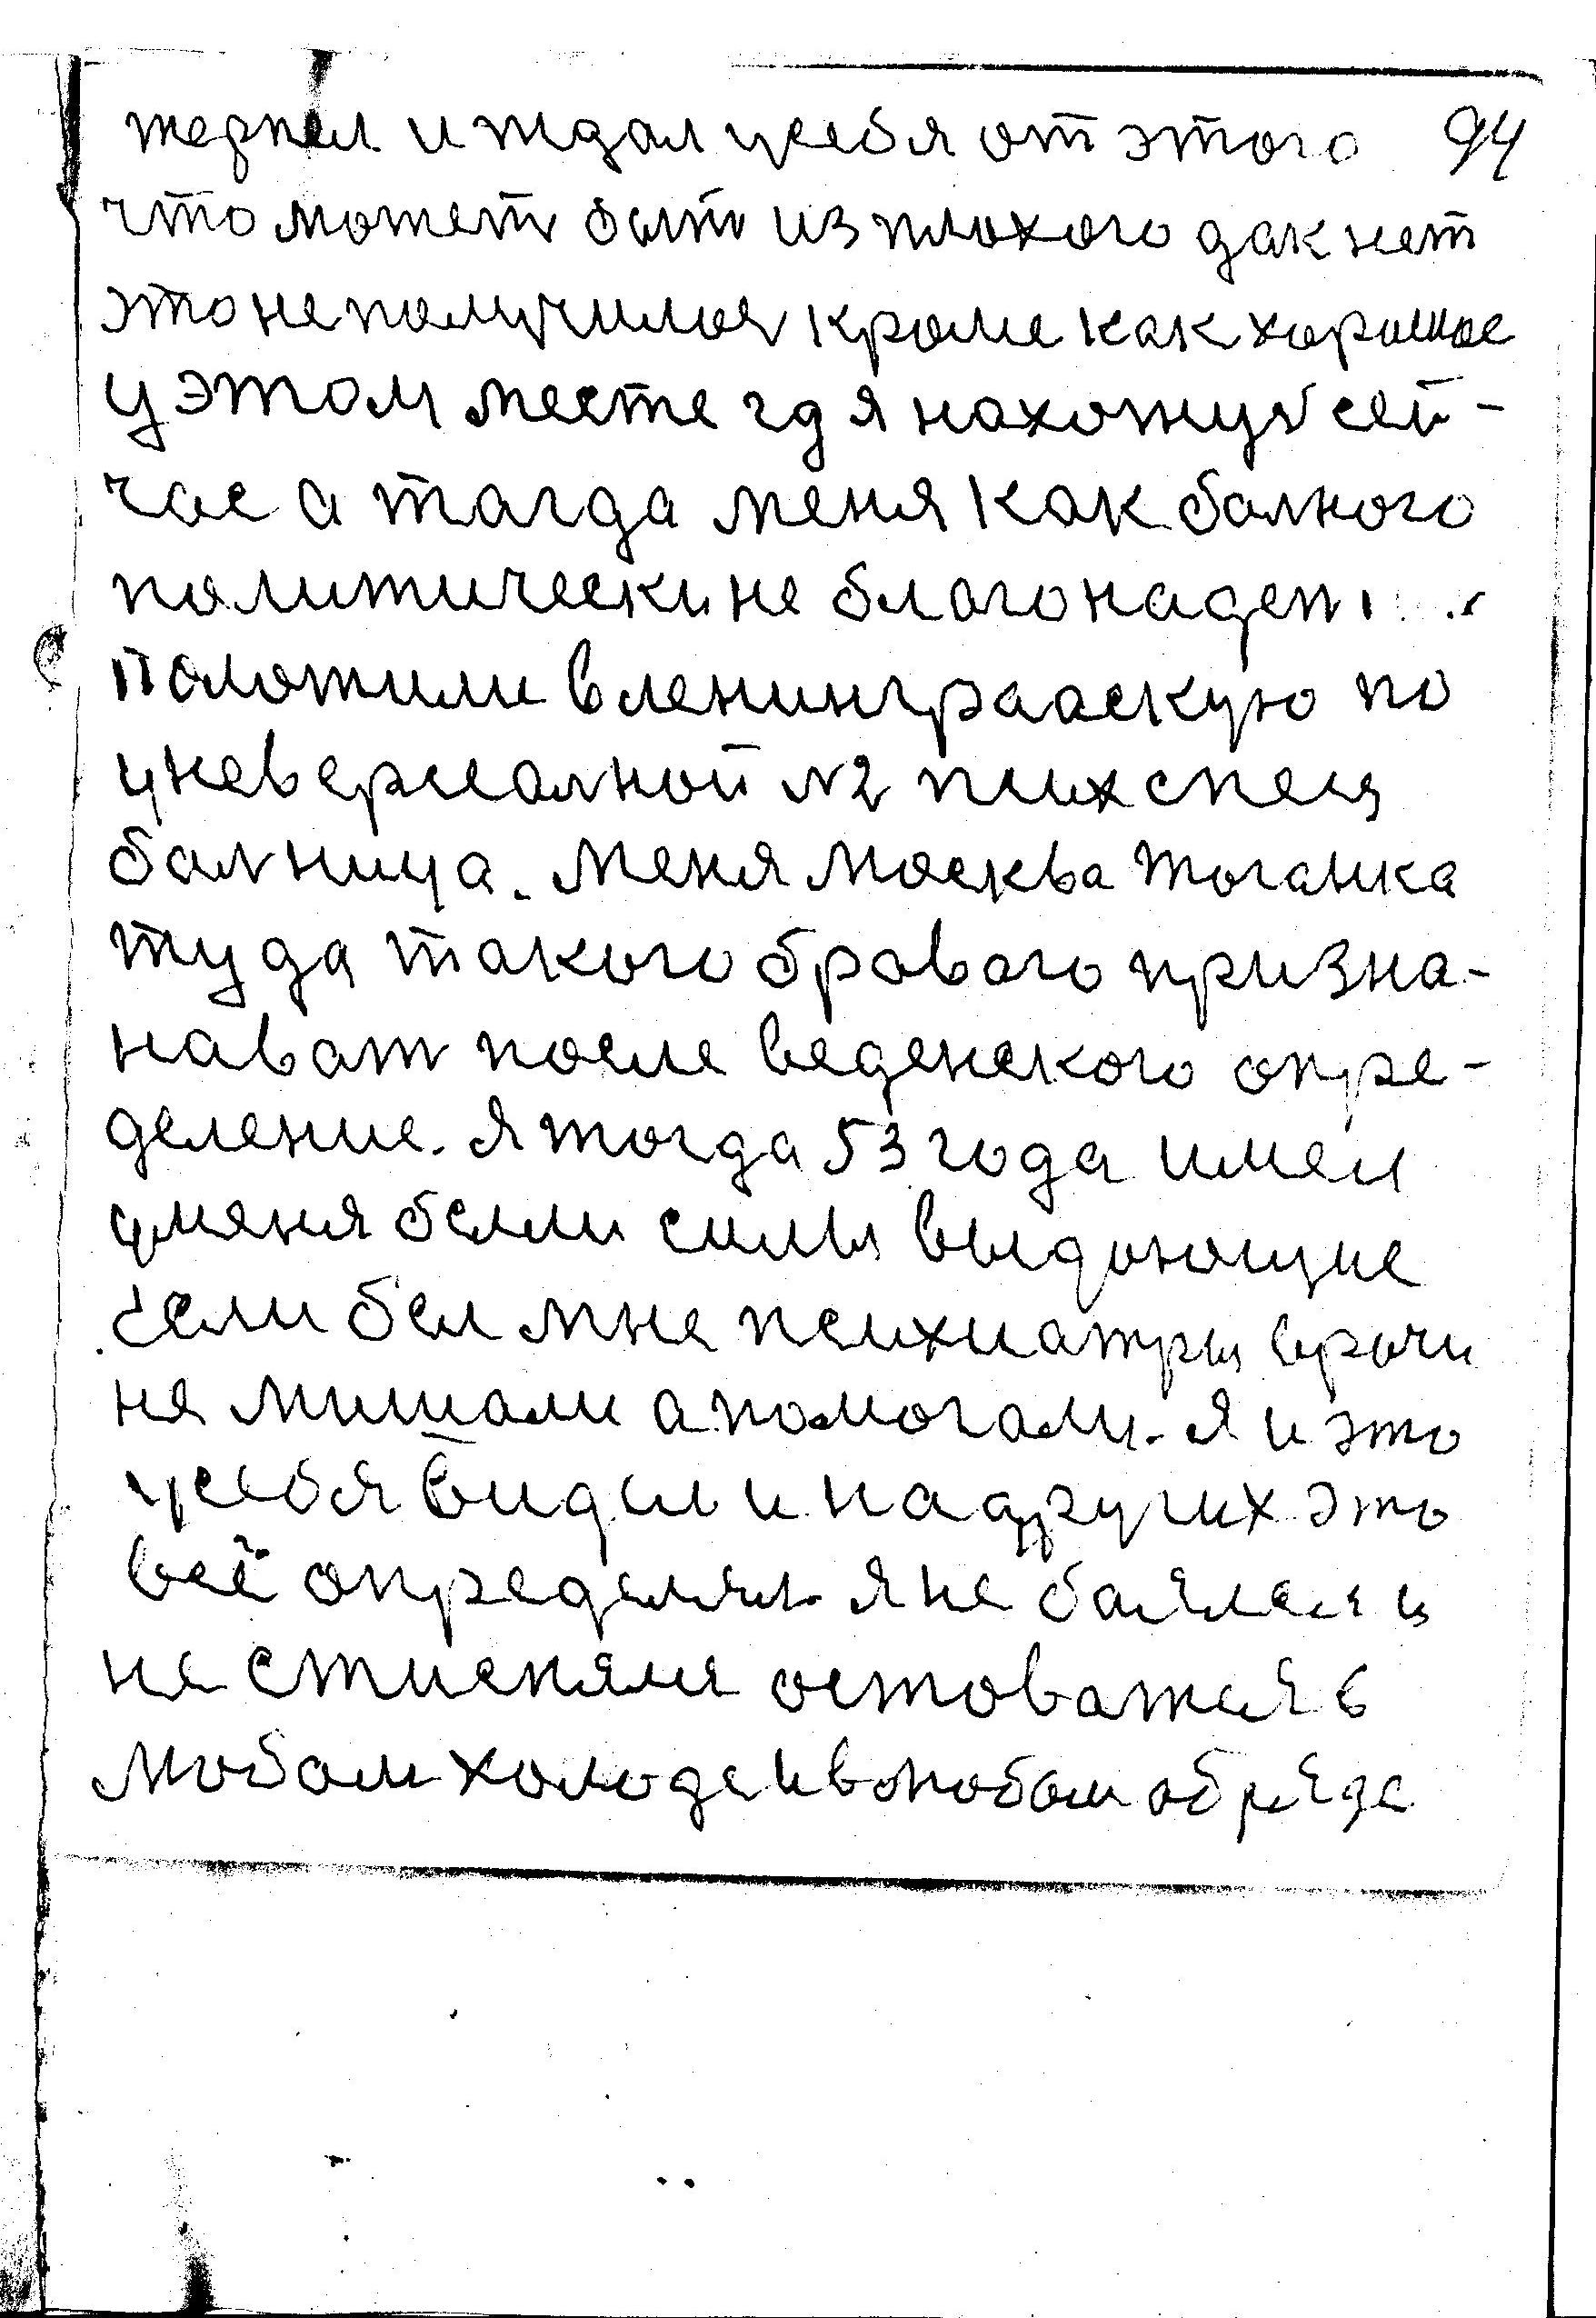 терпел и ждал усебя от этого 94
что может быть из плохого дак нет
это не получилось кроме как хорошое
у этом месте гд я нахожус сей-
час а тагда меня как болного
политически не благонадеж
Положили в ленинградскую по
уневерсалной №2 псих спец
балница. меня москва таганка
туда такого бравого призна-
нават после веденского опре-
деление. я тогда 53 года имел
уменя были силы выдающие
если бы мне психиатры врачи
не мишали а помогали. я и это
усебя видел и на других это
всё определял. я не боялся и
не стиснялся оставатся в
любом холоде и в любом обряде